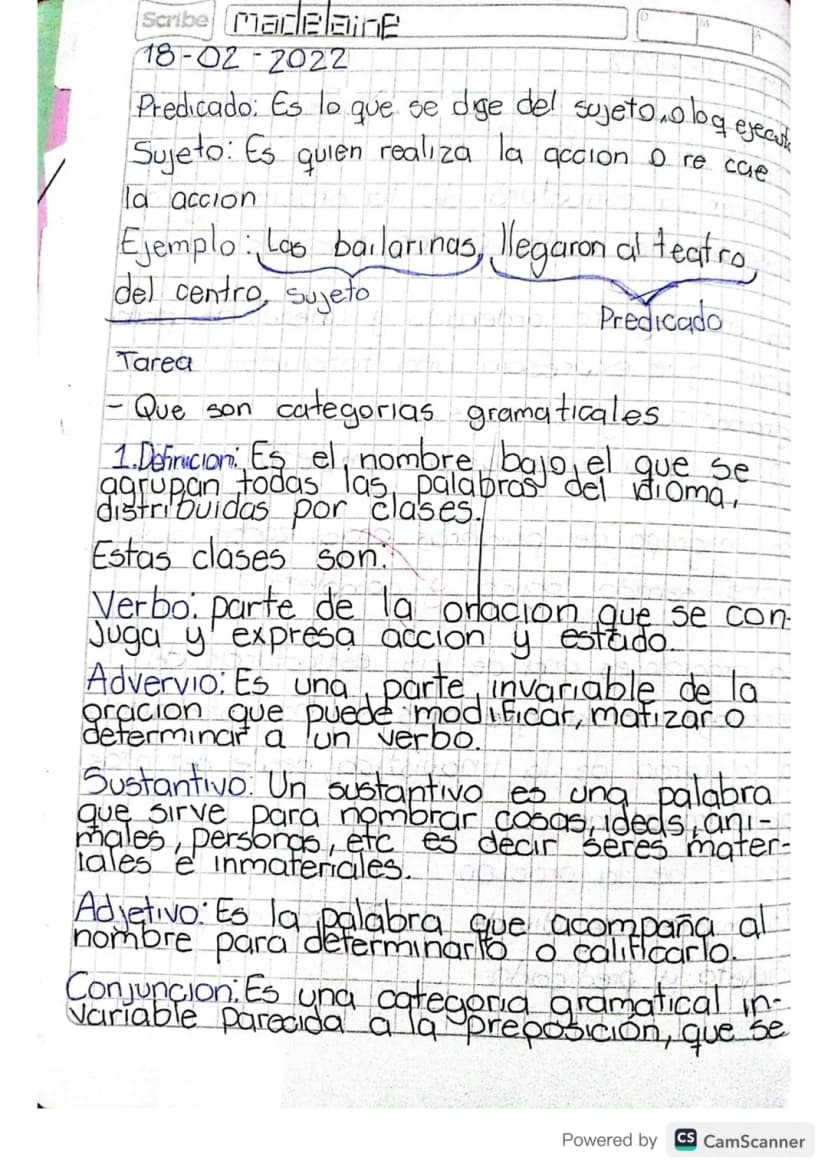 Scribe Madelaine
D M A
18-02-2022
Predicado: Es lo que se dige del sujeto, o lo q ejecuta
Sujeto: Es quien realiza la accion o re cae
la accion
Ejemplo: Las bailarinas, llegaron al teatro
del centro, sujeto
Predicado
Tarea
- Que son categorias gramaticales
1. Definicion: Es el nombre bajo el que se
agrupan todas las palabras del idioma,
distribuidas por clases.
Estas clases son:
Verbo: parte de la oriacion que se con-
Juga y expresa accion y estado.
Advervio: Es una parte invariable de la
oracion que puede modificar, matizar o
determinar a un verbo.
Sustantivo: Un sustantivo es una palabra
que sirve para nombrar cosas, ideas, ani-
males, personas, etc es decir seres mater-
iales e inmateriales.
Adjetivo: Es la palabra que acompaña al
nombre para determinarlo o calificarlo.
Conjuncion: Es una categoria gramatical in-
variable parecida a la preposición, que se
Powered by CS CamScanner